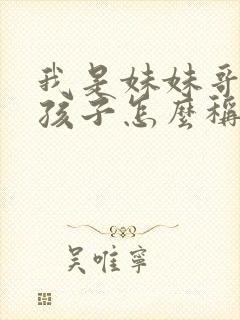 我是妹妹哥
孩子怎麼稱
吳唯寧